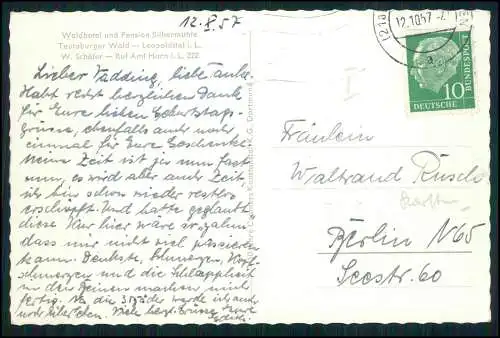 12.X.57
Waldhotel und Pension Silbermühle
Teutoburger Wald — Leopoldstal i. L.
W. Schäfer — Ruf Amt Horn i. L. 222
Lieber Vadding, liebe Tante.
Habt recht herzlichen Dank
für Eure lieben Geburtstags-
grüsse, ebenfalls auch noch
einmal für Eure Geschenke
Meine Zeit ist ja nun fast
um, es wird aber auch Zeit
ich bin schon wieder restlos
erschöpft. Und hatte geglaubt
diese Kur hier wäre so zahm
dass mir nicht viel passieren
kann. Denkste, Schmerzen, Kopf-
schmerzen und die Schlappheit
in den Beinen machen mich
fertig. Na die 3 Tage werde ich auch
noch überstehen. Viele herzl. Grüsse Eure
Edith
12.10.57
DEUTSCHE
BUNDESPOST
10
Fräulein
Waltraud Rusch
Berlin N 65
Seestr. 60